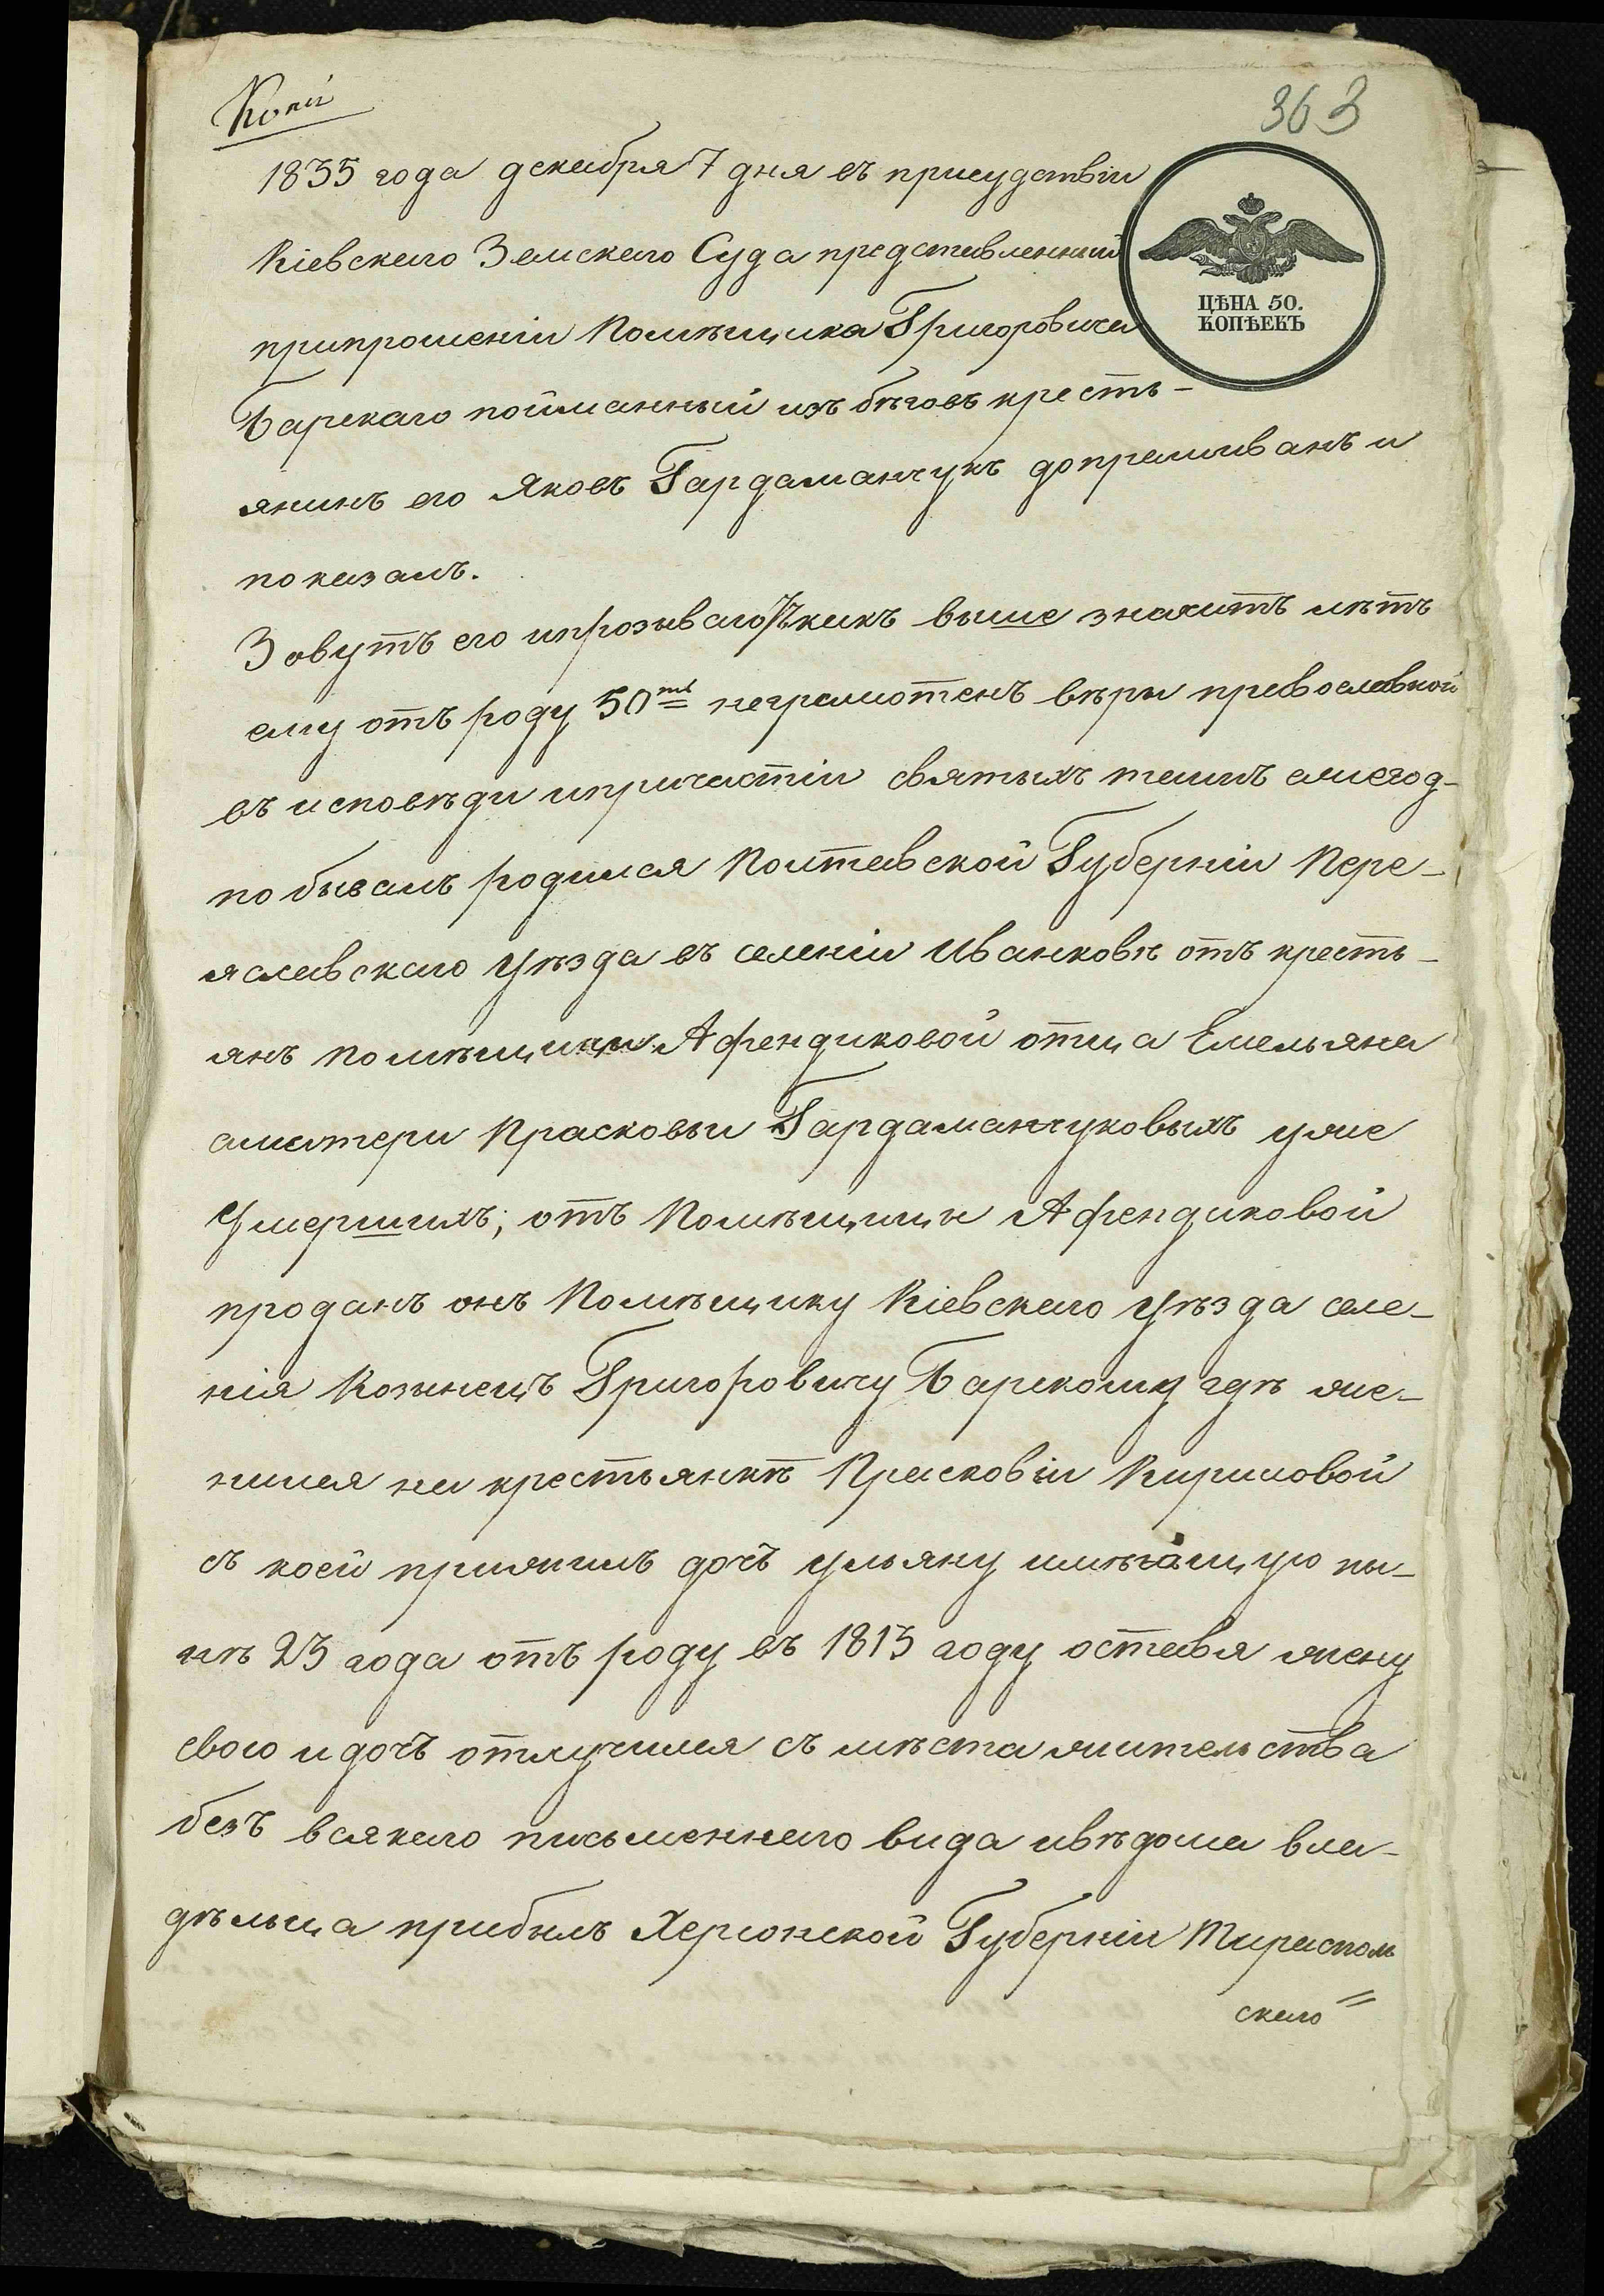 Копiи
363
1835 года декабря 7 дня въ присудствіи
Кіевскаго Земскаго Суда представленный
припрошеніи Помѣщика Григоровича
ЦѢНА 50.
КОПѢЕКЪ
Барскаго пойманный изъ бѣговъ кресть-
янинъ его Яковъ Гардаманчукъ допрашиванъ и
показалъ.
Зовутъ его ипрозываютъ какъ выше значитъ лѣтъ
ему отъ роду 50ть неграмотенъ вѣры православной
въ исповѣди ипричастіи святыхъ таинъ ежегод-
но бывалъ родился Полтавской Губерніи Пере-
яславскаго уѣзда въ селеніи Иванковѣ отъ кресть-
янъ помѣщицы Афендиковой отца Емельяна
аматери Прасковьи Гардаманчуковыхъ уже
умершихъ; отъ Помѣщицы Афендиковой
проданъ онъ Помѣщику Кіевскаго уѣзда селе-
нія Кознецъ Григоровичу Барскому гдѣ же-
нился на крестьянкѣ Прасковіи Кириловой
съ коей прижилъ дочъ ульяну имѣющую ны-
нѣ 23 года отъ роду въ 1813 году оставя жену
свою и дочъ отлучился съ мѣста жительства
безъ всякаго письменнаго вида ивѣдома вла-
дѣльца прибылъ Херсонской Губерніи Тирасполь
скаго